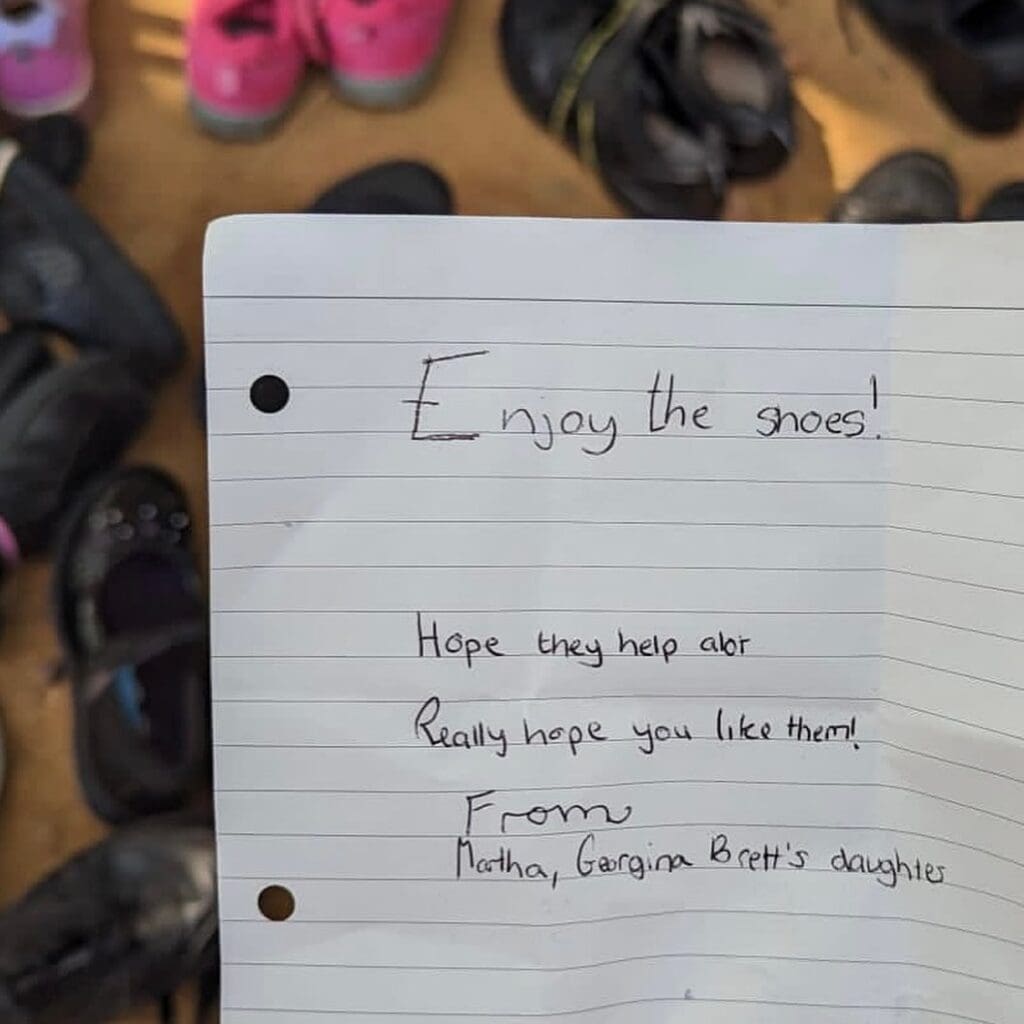 Enjoy the shoes!
Hope they help alot
Really hope you like them!
From
Martha, Georgina Brett's daughter